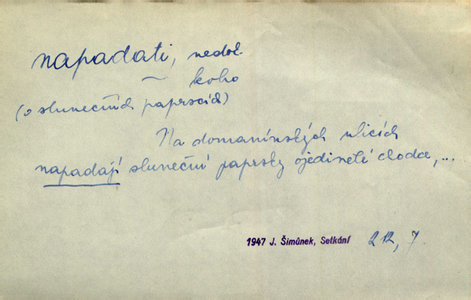 napadati, nedok
— koho
(o slunečních paprscích)
Na domanínských ulicích
napadají sluneční paprsky ojedinělé chodce, ...
1947 J. Šimůnek, Setkání 212, 7.